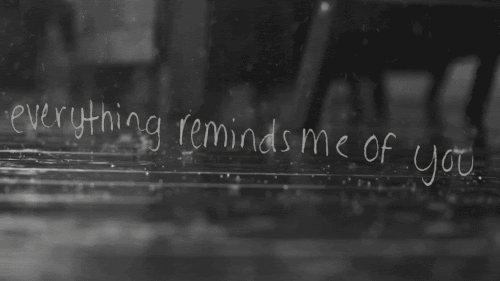 everything reminds me of you.